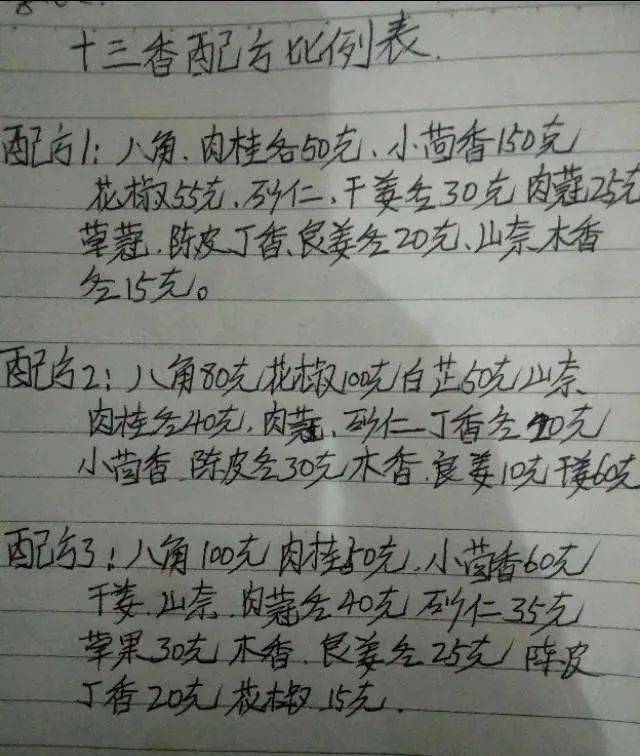 十三香配方比例表.
配方1:八角、肉桂各50克、小茴香150克
花椒55克、砂仁、干姜各30克 肉蔻25克
草蔻、陈皮丁香、良姜各20克、山奈、木香
各15克。
配方2:八角80克花椒100克白芷50克山奈、
肉桂各40克,肉蔻、砂仁、丁香各20克
小茴香、陈皮各30克木香、良姜10克干姜60克
配方3:八角100克肉桂50克、小茴香60克
干姜、山奈、肉蔻各40克砂仁35克
草果30克木香、良姜各25克陈皮
丁香20克花椒15克.